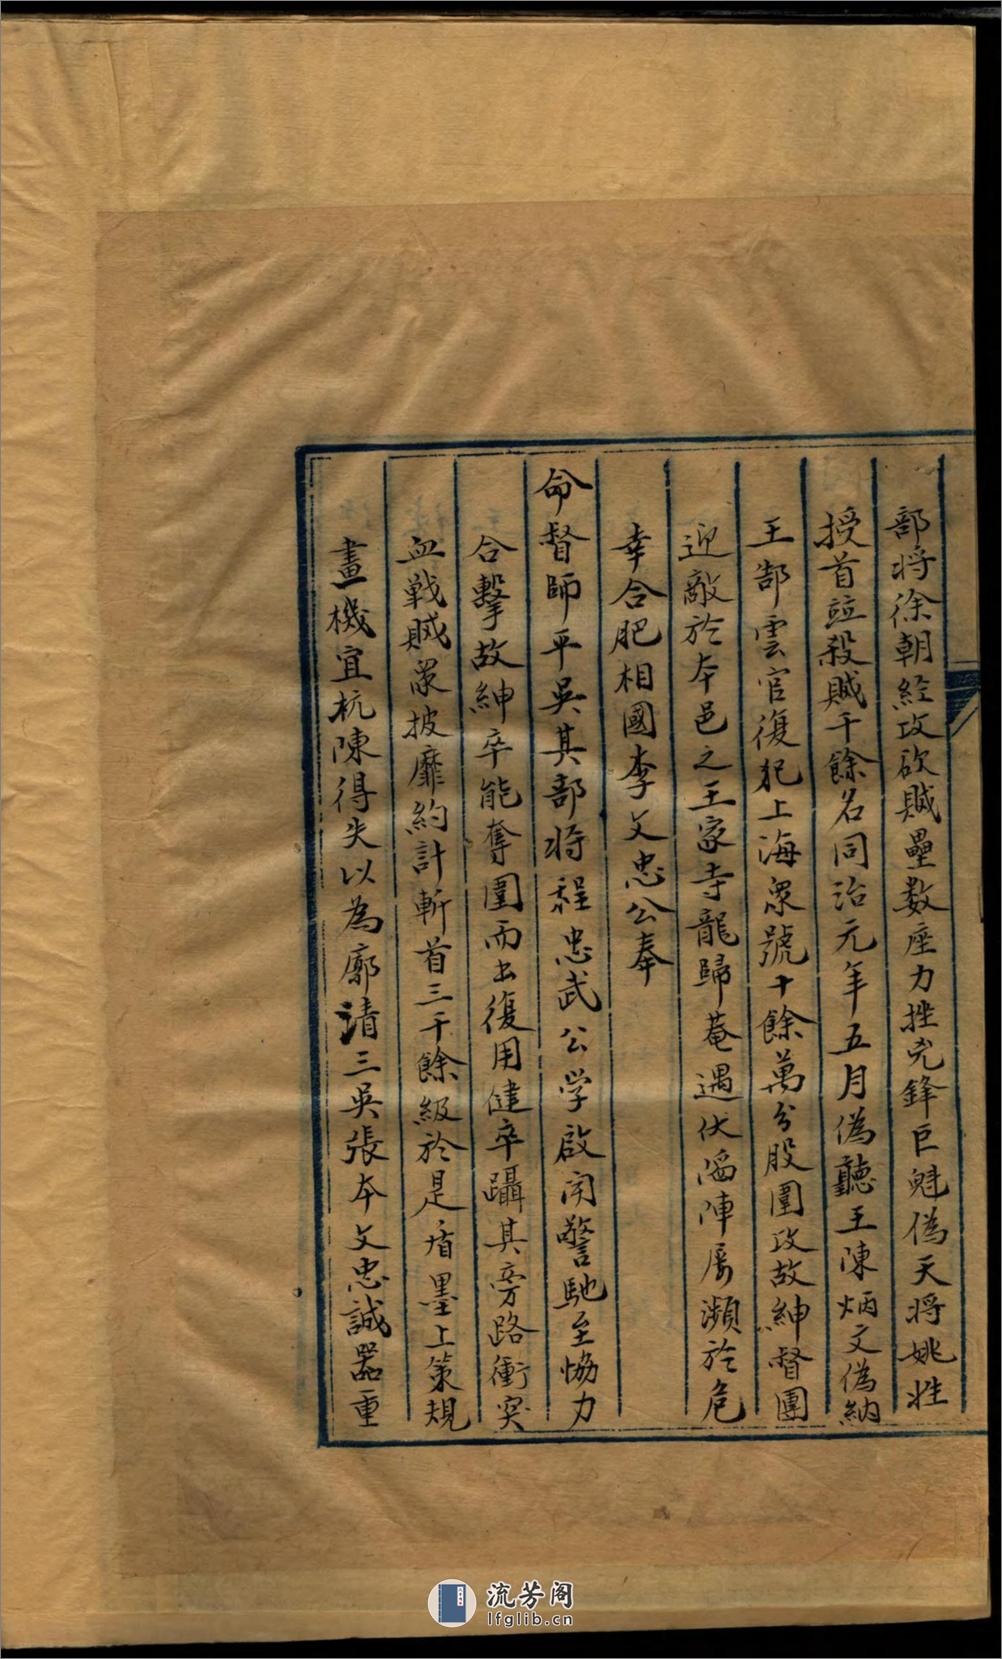 部将徐朝經攻砍賊壘数座力挫兇鋒巨魁偽天将姚姓
授首並殺賊千餘名同治元年五月偽聽王陳炳文偽納
王郜雲官復犯上海衆號十餘萬分股圍攻故紳督團
迎敵於本邑之王家寺龍歸菴遇伏陷陣屡瀕於危
幸合肥相國李文忠公奉
命督師平吳其部将程忠武公学啟聞警馳至協力
合擊故紳卒能奪圍而出復用健卒躡其旁路衝突
血戦賊衆披靡約計斬首三千餘級於是盾墨上策規
畫機宜杭陳得失以為廓清三吳張本文忠誠器重
流芳阁
lfglib.cn